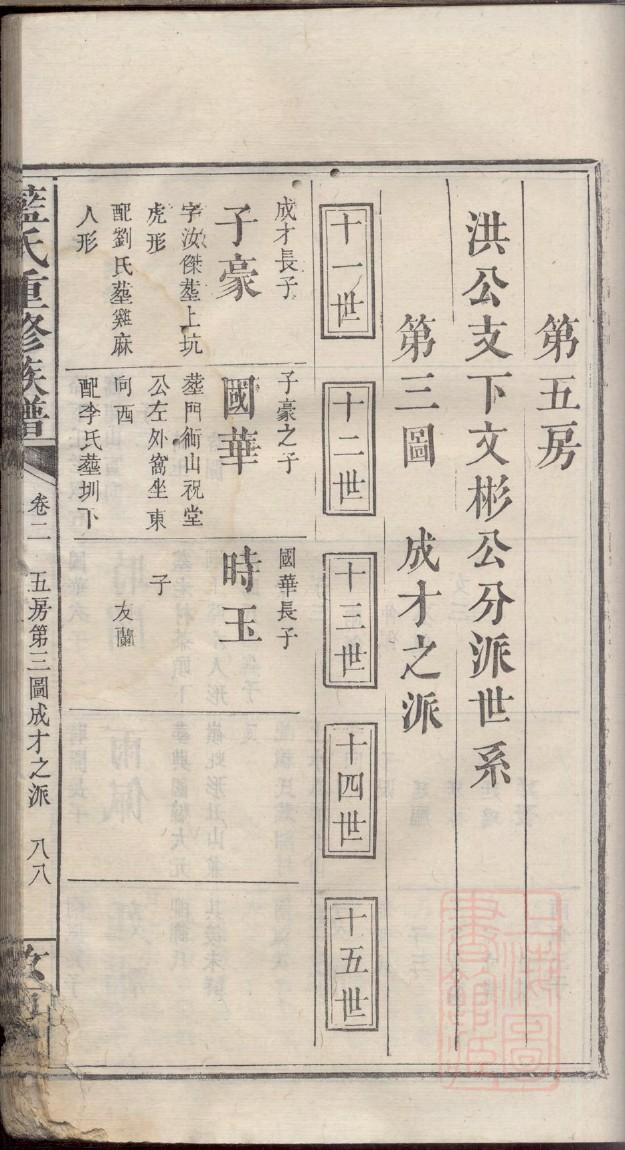 第五房
洪公支下文彬公分派世系
第三圖　成才之派
十一世
十二世
十三世
十四世
十五世
成才長子
子豪
字汝傑塟上坑
虎形
配劉氏塟雞麻
人形
子豪之子
國華
塟門衕山祝堂
公左外窩坐東
向西
配李氏塟圳下
國華長子
時玉
子
友蘭
藍氏重修族譜
卷二
五房第三圖成才之派
八八
上海圖書館藏